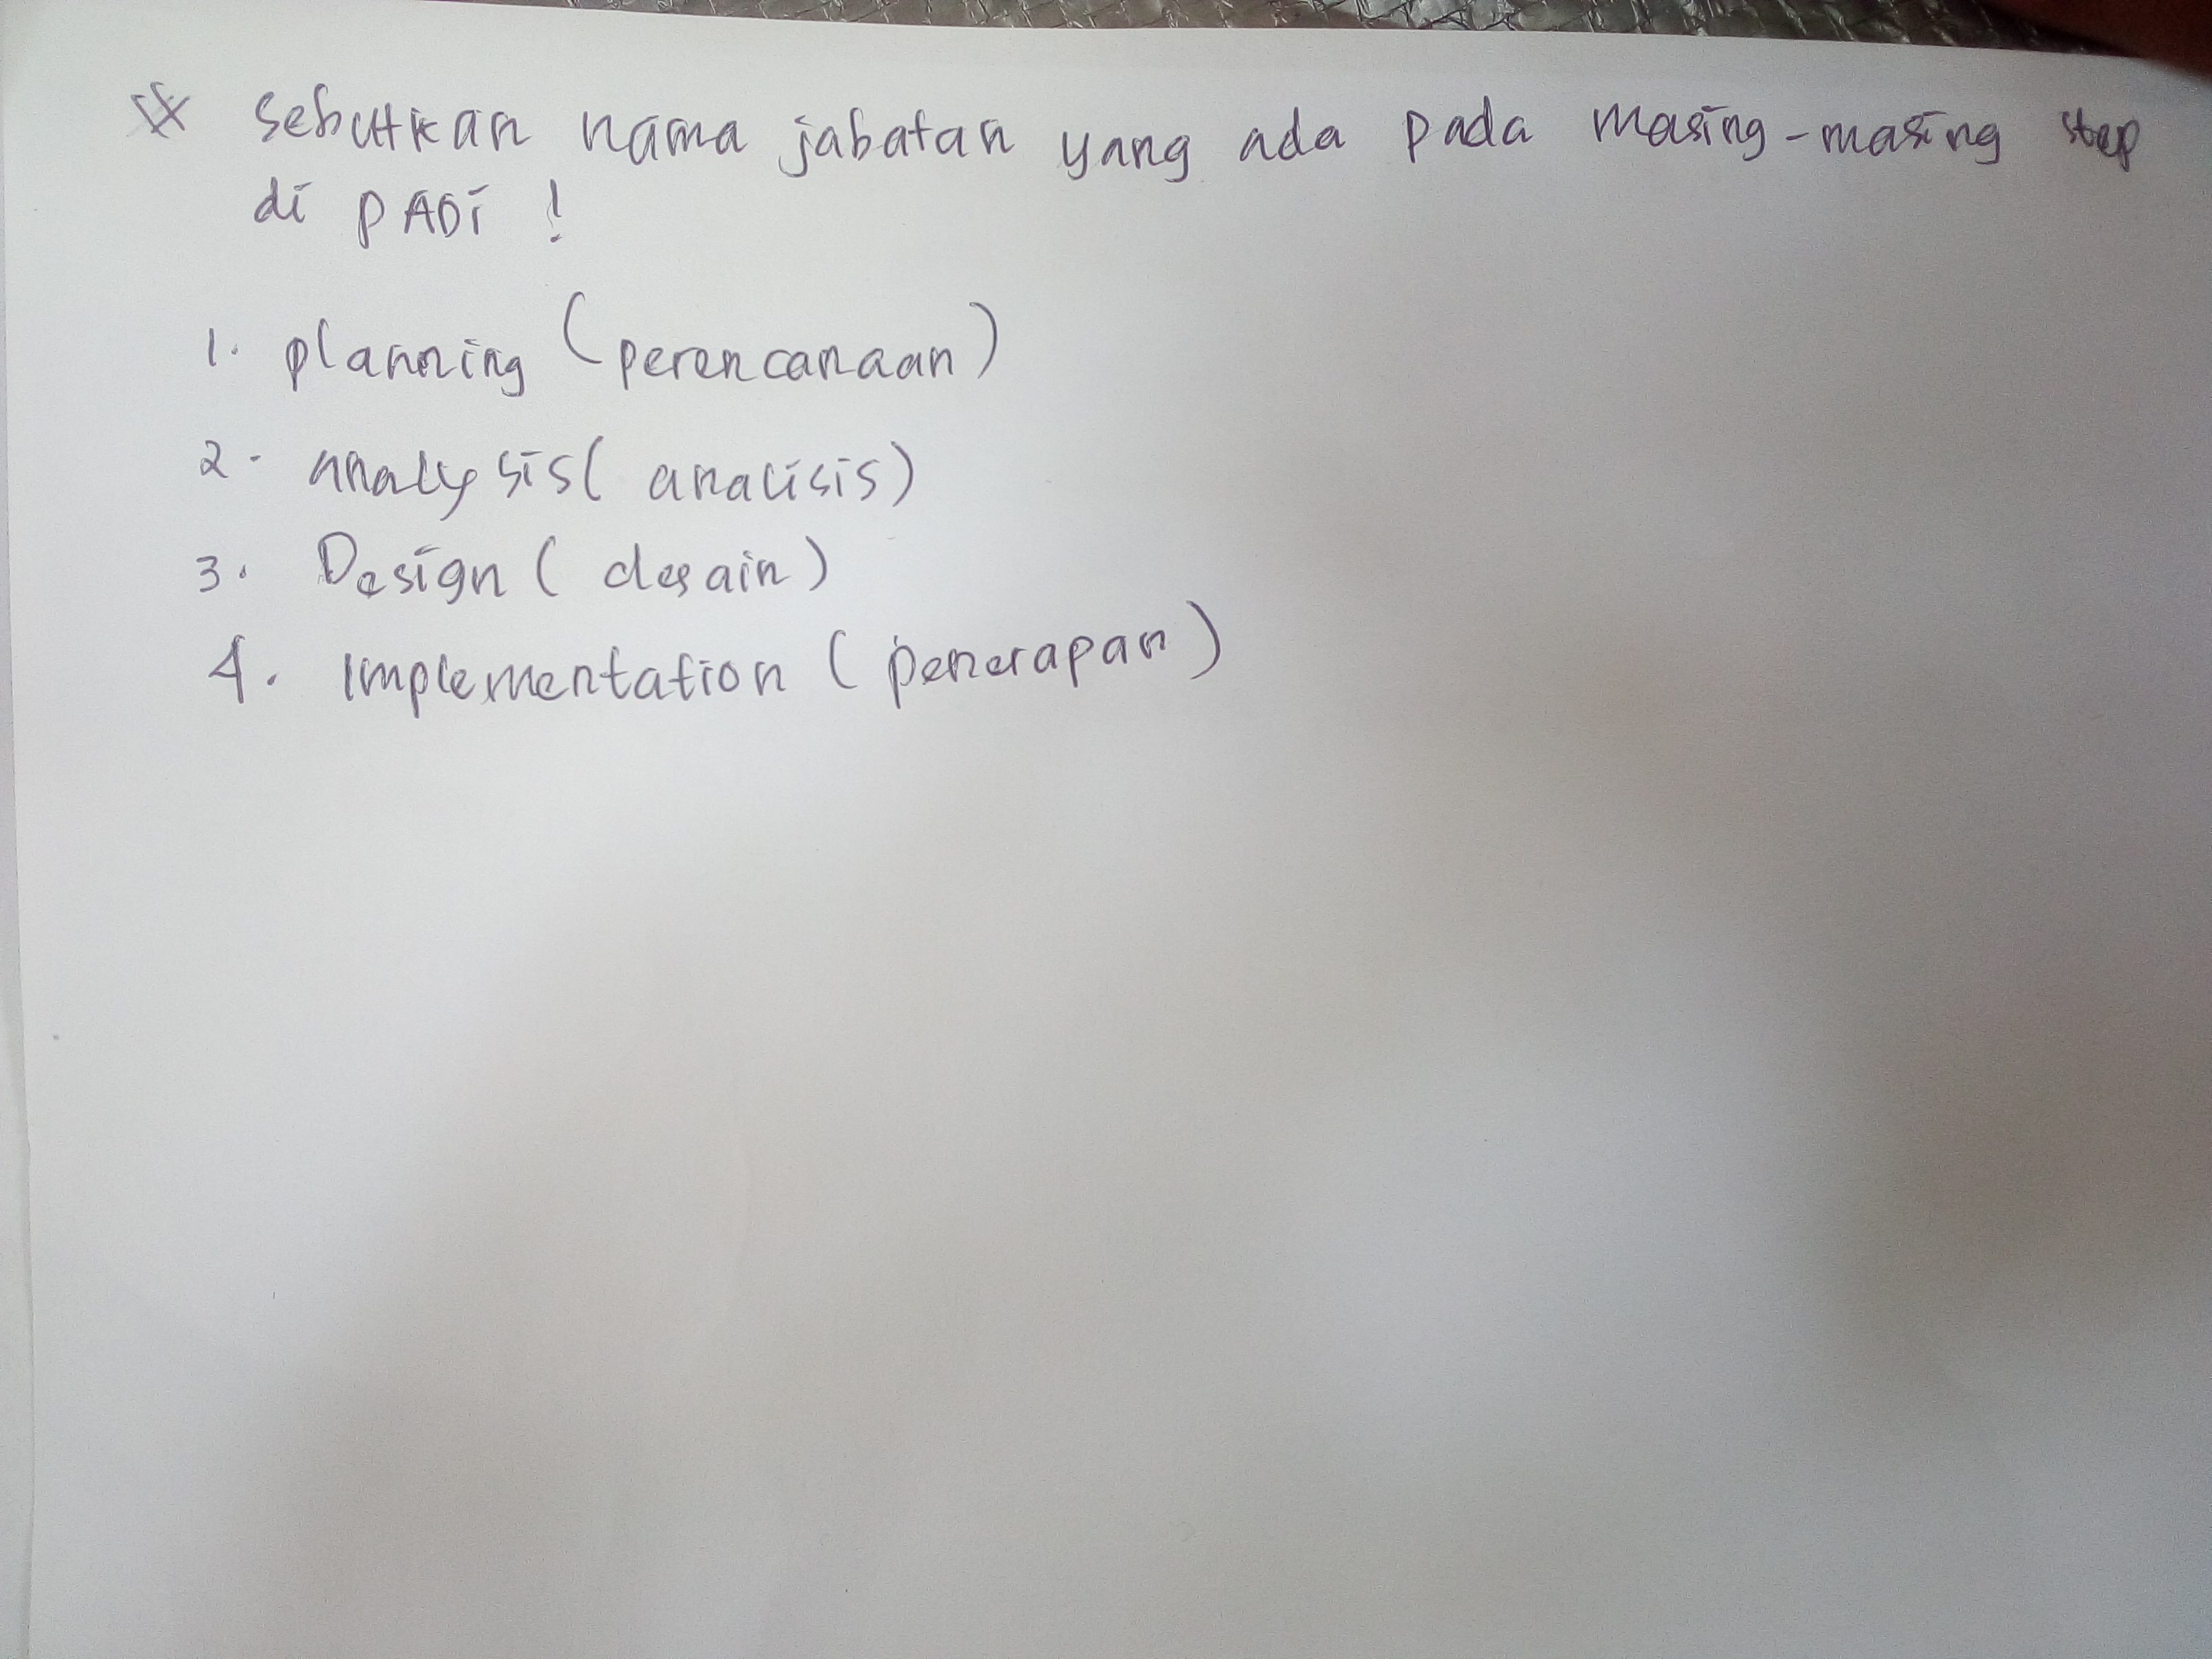 Sebutkan nama jabatan yang ada pada masing-masing step
di PADI !
1. planning (perencanaan)
2. analysis ( analisis)
3. Design ( desain)
4. Implementation ( penerapan)